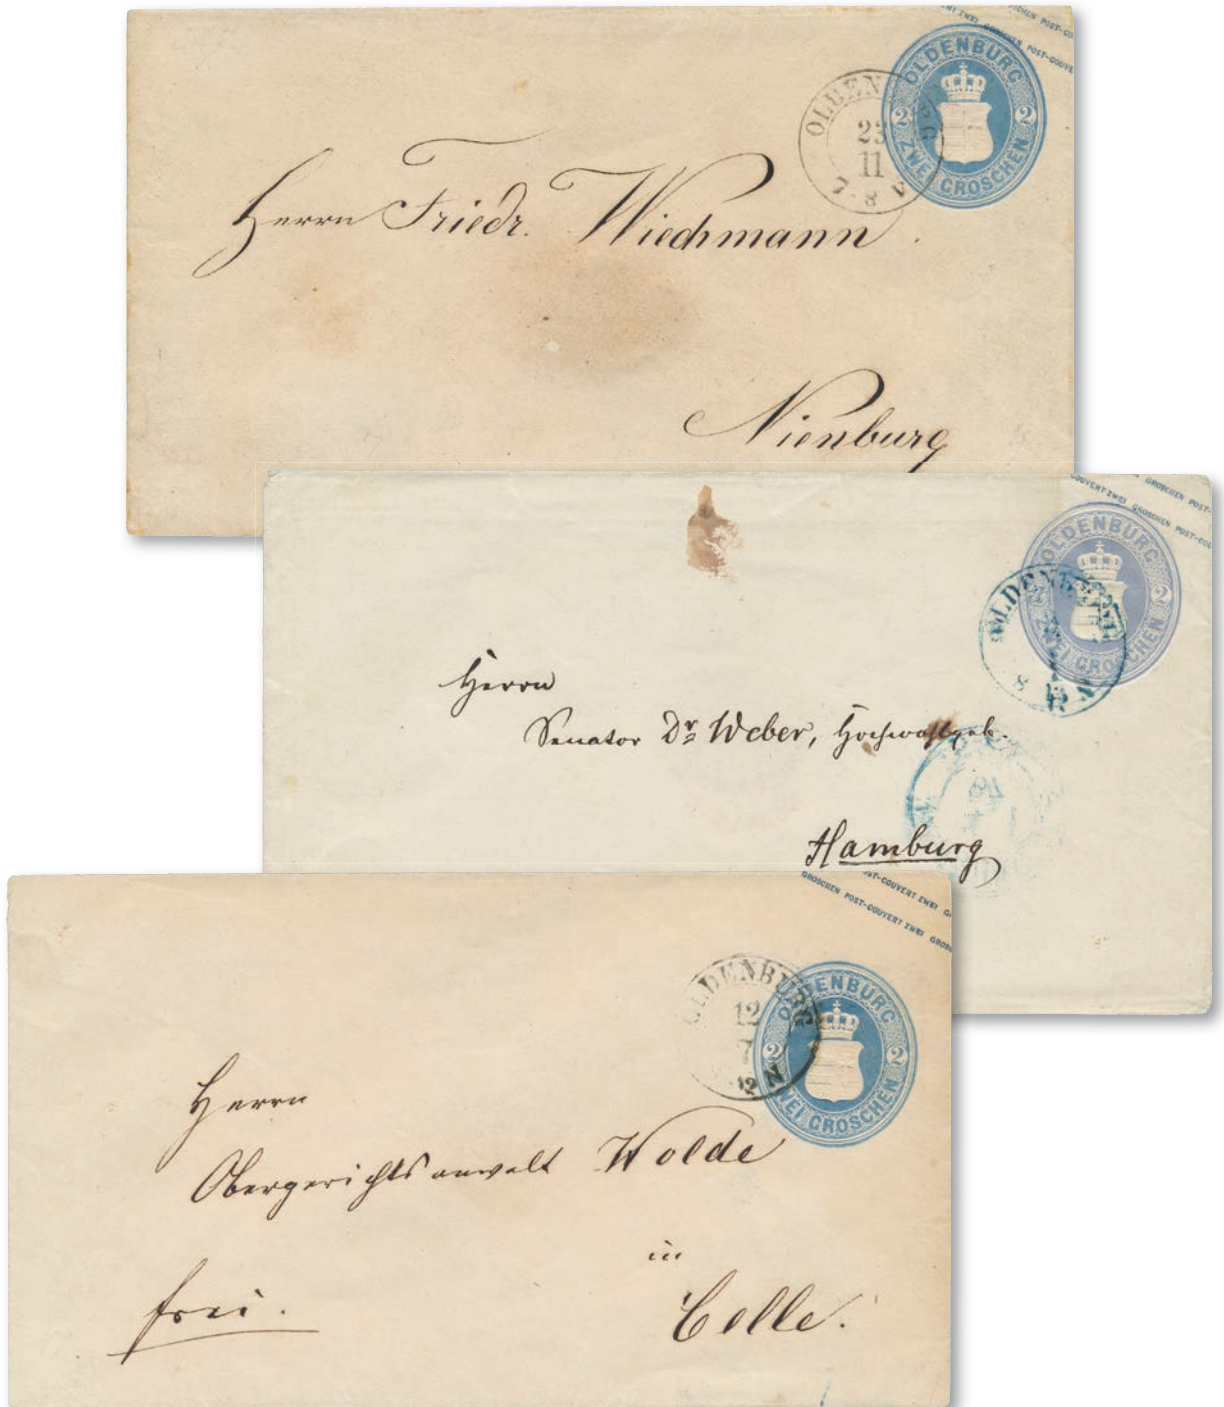 ZWEI GROSCHEN POST-COUVERT
GROSCHEN POST-COUVERT
OLDENBURG
2 2
ZWEI GROSCHEN
23
11
7-8 V
Herrn Friedr. Wiechmann.
Nienburg
GROSCHEN POST-
COUVERT ZWEI GROSCHEN POST-COU
OLDENBURG
2 2
ZWEI GROSCHEN
OLDENBURG
Herrn
Senator Dr Weber, Hochwohlgeb.
Hamburg
POST-COUVERT ZWEI G
GROSCHEN POST-COUVERT ZWEI GROS
OLDENBURG
12
OLDENBURG
2 2
ZWEI GROSCHEN
Herrn
Obergerichtsanwalt Wolde
in
frei.
Celle.